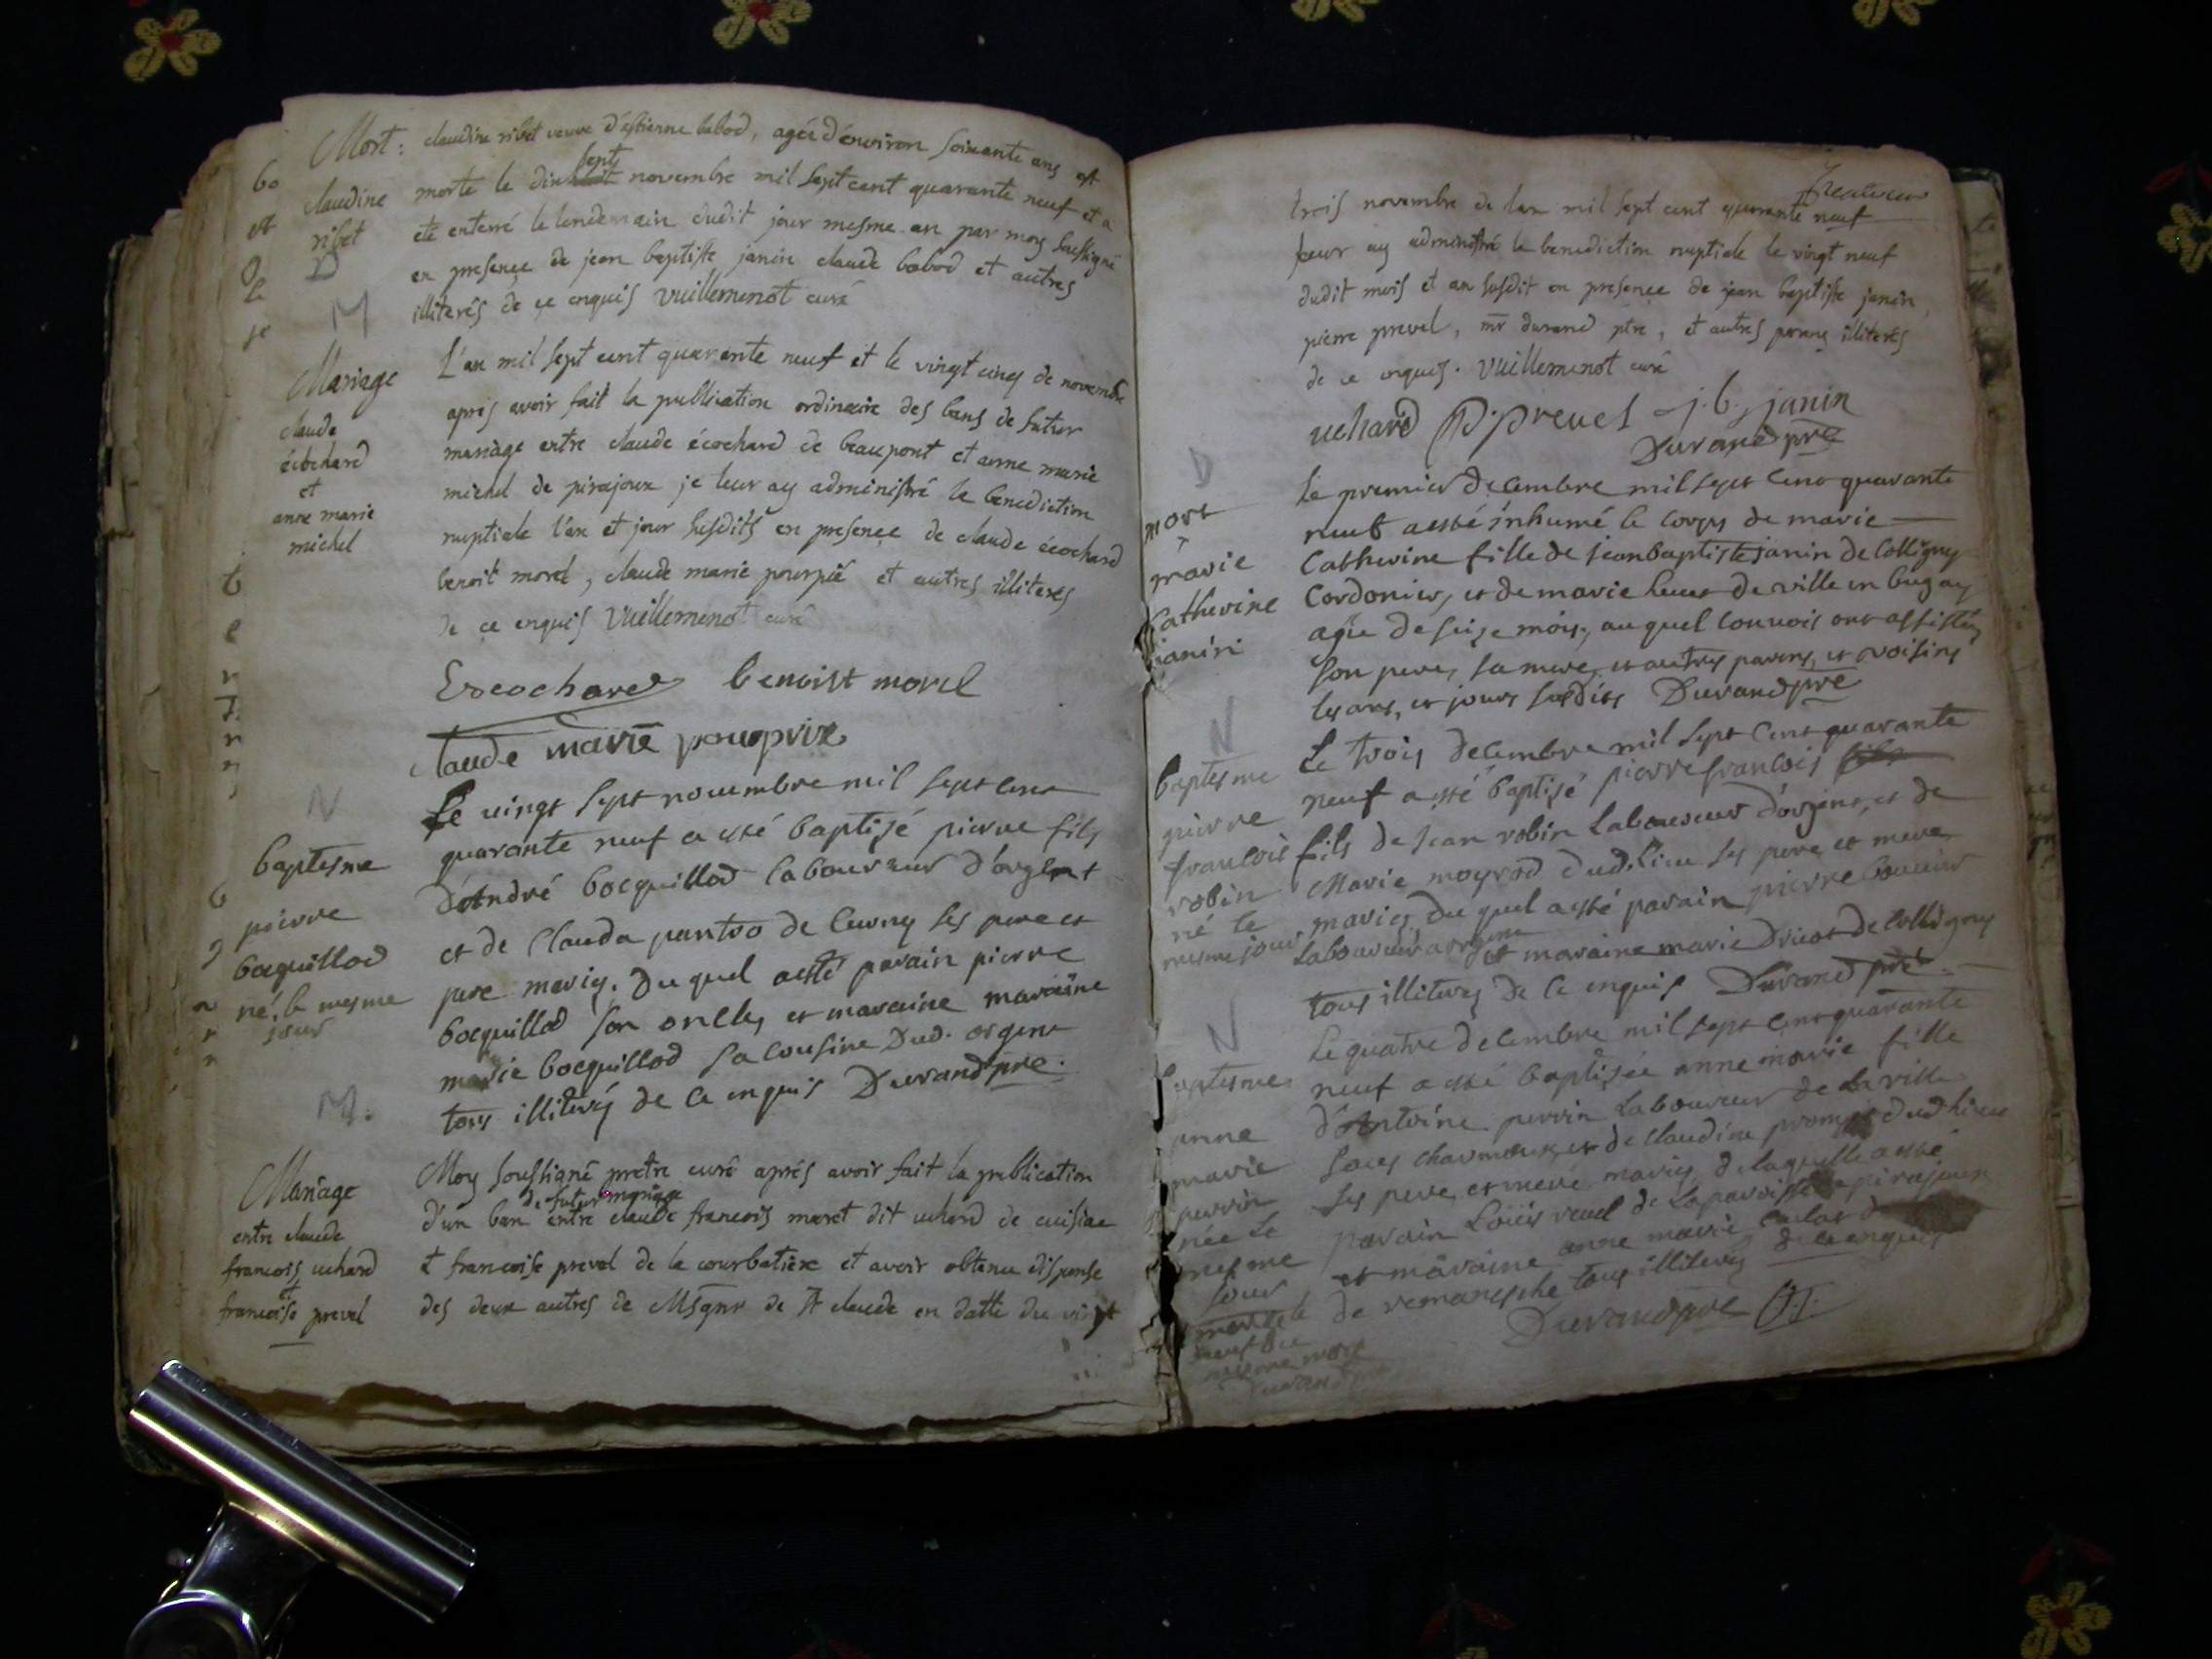 Mort :
claudine
ribet
D
claudine ribet veuve d'estienne babod, agée d'environ soixante ans est
morte le dix sept novembre mil sept cent quarante neuf et a
eté enterré le lendemain dudit jour mesme an par moy soussigné
en presençe de jean baptiste janin claude babod et autres
illiterés de çe enquis vuillemenot curé
M
Mariage
claude
écochard
et
anne marie
michel
L'an mil sept cent quarante neuf et le vingt cinq de novembre
aprés avoir fait la publication ordinaire des bans de futur
mariage entre claude écochard de beaupont et anne marie
michel de pirajoux je leur ay administré la benediction
nuptiale l'an et jour susdits en presençe de claude écochard
benoit morel, claude marie pourpié et autres illiterés
de çe enquis Vuillemenot curé
Escochard benoist morel
claude marie
N
baptesme
pierre
bocquillod
né le mesme
jour
Le vingt sept novembre mil sept cent
quarante neuf a esté baptisé pierre fils
d'André bocquillod laboureur d'orgent
et de Clauda de Cuvny ses pere et
pere mariés. Du quel a esté parain pierre
bocquillod son oncle, et maraine maraine
marie bocquillod sa cousine dud. orgent
tous illiterés de ce enquis Durand pre.
M.
Mariage
entre claude
francois uchard
et
francoise prevel
Moy soussigné pretre curé aprés avoir fait la publication
de futur mariage
d'un ban entre claude francois maret dit uchard de cuisiae
et francoise prevel de la courbatiere et avoir obtenu dispense
des deux autres de Msgnr de St claude en datte du vingt
trois novembre de lan mil sept cent quarante neuf
leur ay administré la benediction nuptiale le vingt neuf
dudit mois et an susdit en presençe de jean baptiste janin,
pierre prevel, mr durand ptre, et autres illiterés
de ce enquis. Vuillemenot curé
uchard P prevel j. b. janin
Durand pre
D
mort
marie
Catherine
janin
Le premier decembre mil sept cent quarante
neuf a esté inhumé le corps de marie
Catherine fille de jean baptiste janin de Colligny
Cordonier, et de marie de ville en bugay
agée de seize mois, au quel convois ont assistés
son pere, sa mere, et autres parens, et voisins
les ans, et jours susdits Durand pre
N
baptesme
pierre
francois
robin
né le
mesme jour
Le trois decembre mil sept cent quarante
neuf a esté baptisé pierre francois
fils de jean robin laboureur d'orgent, et de
Marie moyrod dud. lieu ses pere et mere
mariés, du quel a esté parain pierre
laboureur a orgent et maraine marie de Colligny
tous illiterés de ce enquis Durand pre.
N
baptesme
anne
marie
perrin
née le
mesme
jour
Le quatre decembre mil sept cent quarante
neuf a esté baptisée anne marie fille
d'Antoine perrin laboureur de la ville
sous charmoux, et de claudine dud lieu
ses pere, et mere mariés, de laquelle a esté
parain Loüis revel de la paroisse de pirajoux
et maraine anne marie
de tous illiterés de ce enquis
Durand pre